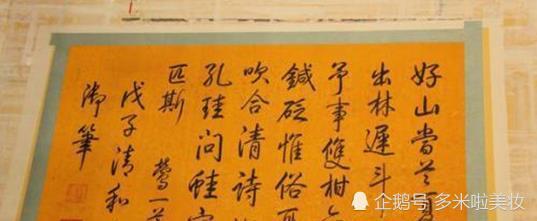 好山當
出林遲斗
予事雙柑
鍼砭惟俗
吹合清詩
孔珪问蛙
匹斯 鶯一首
戊子清和
御筆
企鹅号 多米啦美妆